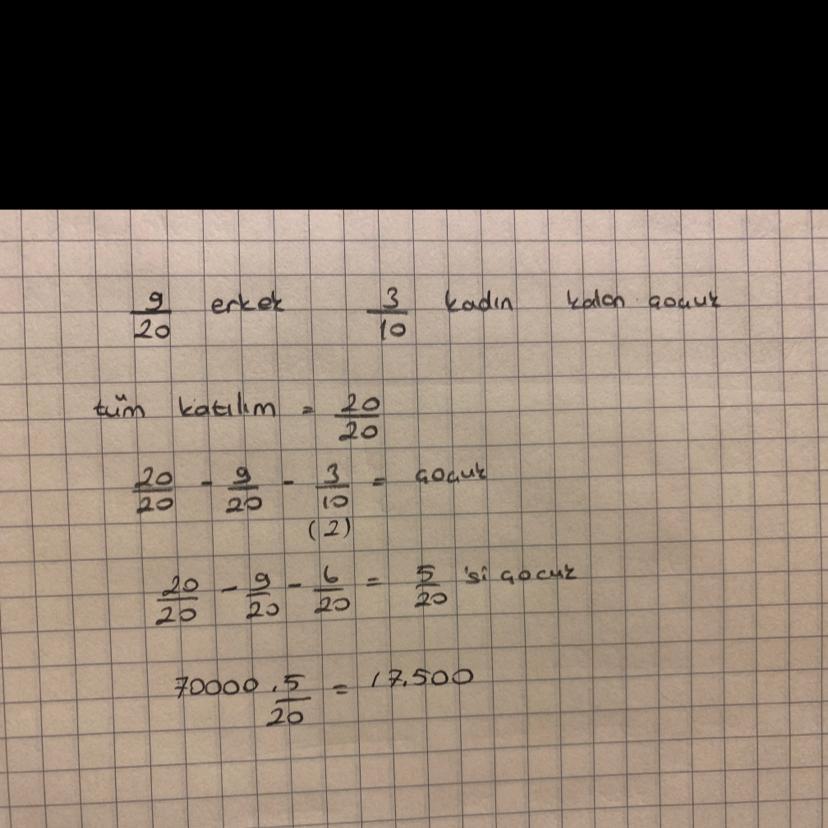 9/20 erkek 3/10 kadın kalan çocuk
tüm katılım = 20/20
20/20 - 9/20 - 3/10 = çocuk
(2)
20/20 - 9/20 - 6/20 = 5/20 'si çocuk
70000 . 5/20 = 17.500